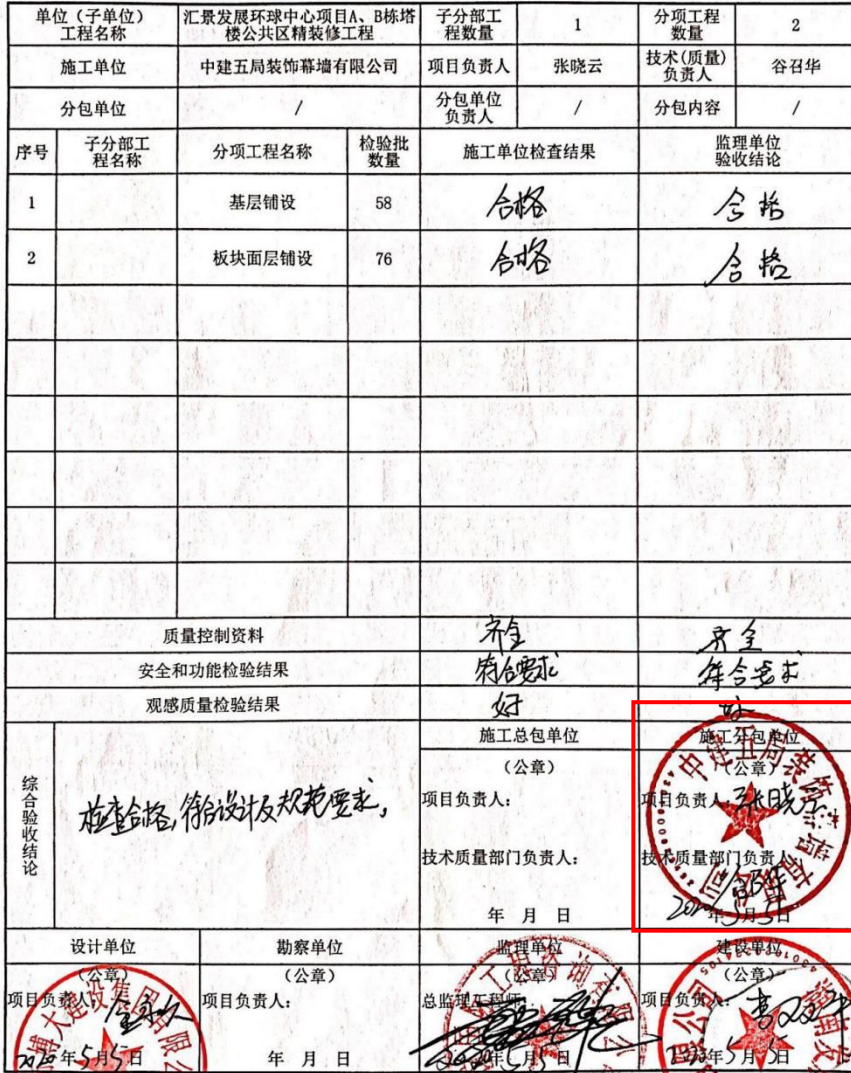 单位（子单位）
工程名称
汇景发展环球中心项目A、B栋塔
楼公共区精装修工程
子分部工
程数量
1
分项工程
数量
2
施工单位
中建五局装饰幕墙有限公司
项目负责人
张晓云
技术(质量)
负责人
谷召华
分包单位
/
分包单位
负责人
/
分包内容
/
序号
子分部工
程名称
分项工程名称
检验批
数量
施工单位检查结果
监理单位
验收结论
1
基层铺设
58
合格
合格
2
板块面层铺设
76
合格
合格
质量控制资料
齐全
齐全
安全和功能检验结果
符合要求
符合要求
观感质量检验结果
好
好
综合验收结论
检查合格,符合设计及规范要求。
施工总包单位
（公章）
项目负责人：
技术质量部门负责人：
年 月 日
施工分包单位
（公章）
项目负责人
张晓云
技术质量部门负责人
年5月5日
中建五局装饰幕墙有限公司
设计单位
（公章）
项目负责人
2020年5月5日
大建设集团有限公
勘察单位
（公章）
项目负责人：
年 月 日
监理单位
（公章）
总监理工程师
5月5日
工程咨询有限公
建设单位
（公章）
项目负责人：
年5月5日